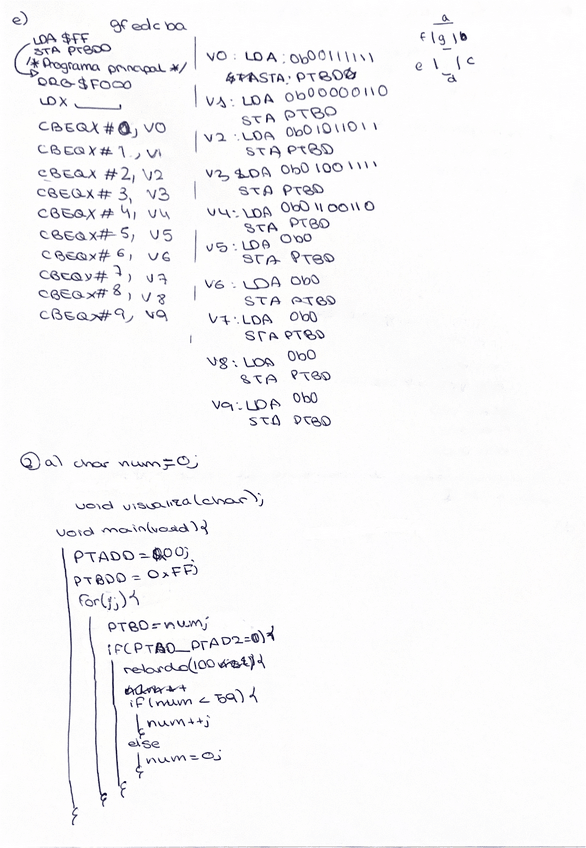 e)
gfedcba
LDA $FF
STA PTBDD
/* Programa principal */
ORG $F000
LDX
CBEQX #0, V0
CBEQX #1, V1
CBEQX #2, V2
CBEQX #3, V3
CBEQX #4, V4
CBEQX #5, V5
CBEQX #6, V6
CBEQX #7, V7
CBEQX #8, V8
CBEQX #9, V9
V0: LDA: 0b00111111
STA: PTBD
V1: LDA 0b00000110
STA PTBD
V2: LDA 0b01011011
STA PTBD
V3 LDA 0b01001111
STA PTBD
V4: LDA 0b01100110
STA PTBD
V5: LDA 0b0
STA PTBD
V6: LDA 0b0
STA PTBD
V7: LDA 0b0
STA PTBD
V8: LDA 0b0
STA PTBD
V9: LDA 0b0
STA PTBD
a
f g b
e c
d
2 a) char num=0;
void visualiza(char);
void main(void){
PTADD = 0x00;
PTBDD = 0xFF;
for(;;){
PTBD=num;
if(PTAD_PTAD2=0){
retardo(100){
if(num < 59){
num++;
}
else
num=0;
}
}
}
}